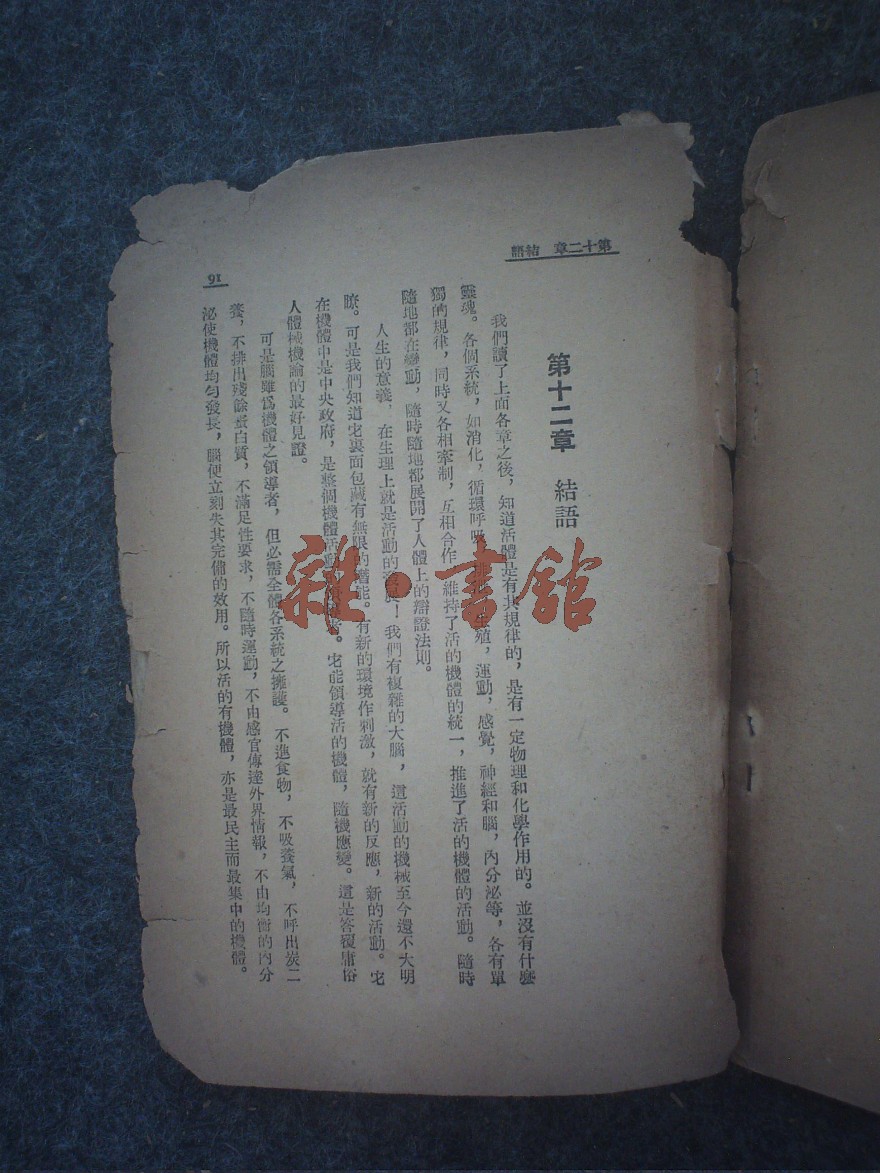 第十二章 結語
91
第十二章 結語
我們讀了上面各章之後，知道活體是有其規律的，是有一定物理和化學作用的。並沒有什麼
靈魂。各個系統，如消化，循環呼吸，殖，運動，感覺，神經和腦，內分泌等，各有單
獨的規律，同時又各相牽制，互相合作，維持了活的機體的統一，推進了活的機體的活動。隨時
隨地都在變動，隨時隨地都展開了人體上的辯證法則。
人生的意義，在生理上就是活動的！我們有複雜的大腦，這活動的機械至今還不大明
瞭。可是我們知道它裏面包藏有無限的潛能。有新的環境作刺激，就有新的反應，新的活動。它
在機體中是中央政府，是整個機體活動。它能領導活的機體，隨機應變。這是答覆庸俗
人體械機論的最好見證。
可是腦雖爲機體之領導者，但必需全體各系統之擁護。不進食物，不吸養氣，不呼出炭二
養，不排出殘餘蛋白質，不滿足性要求，不隨時運動，不由感官傳達外界情報，不由均衡的內分
泌使機體均勻發長，腦便立刻失其完備的效用。所以活的有機體，亦是最民主而最集中的機體。
雜·書館